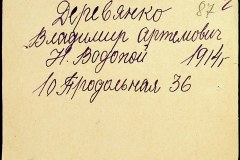 87
Деревянко
Владимир Артемович
Н. Водопой 1914г
10 Продольная 36